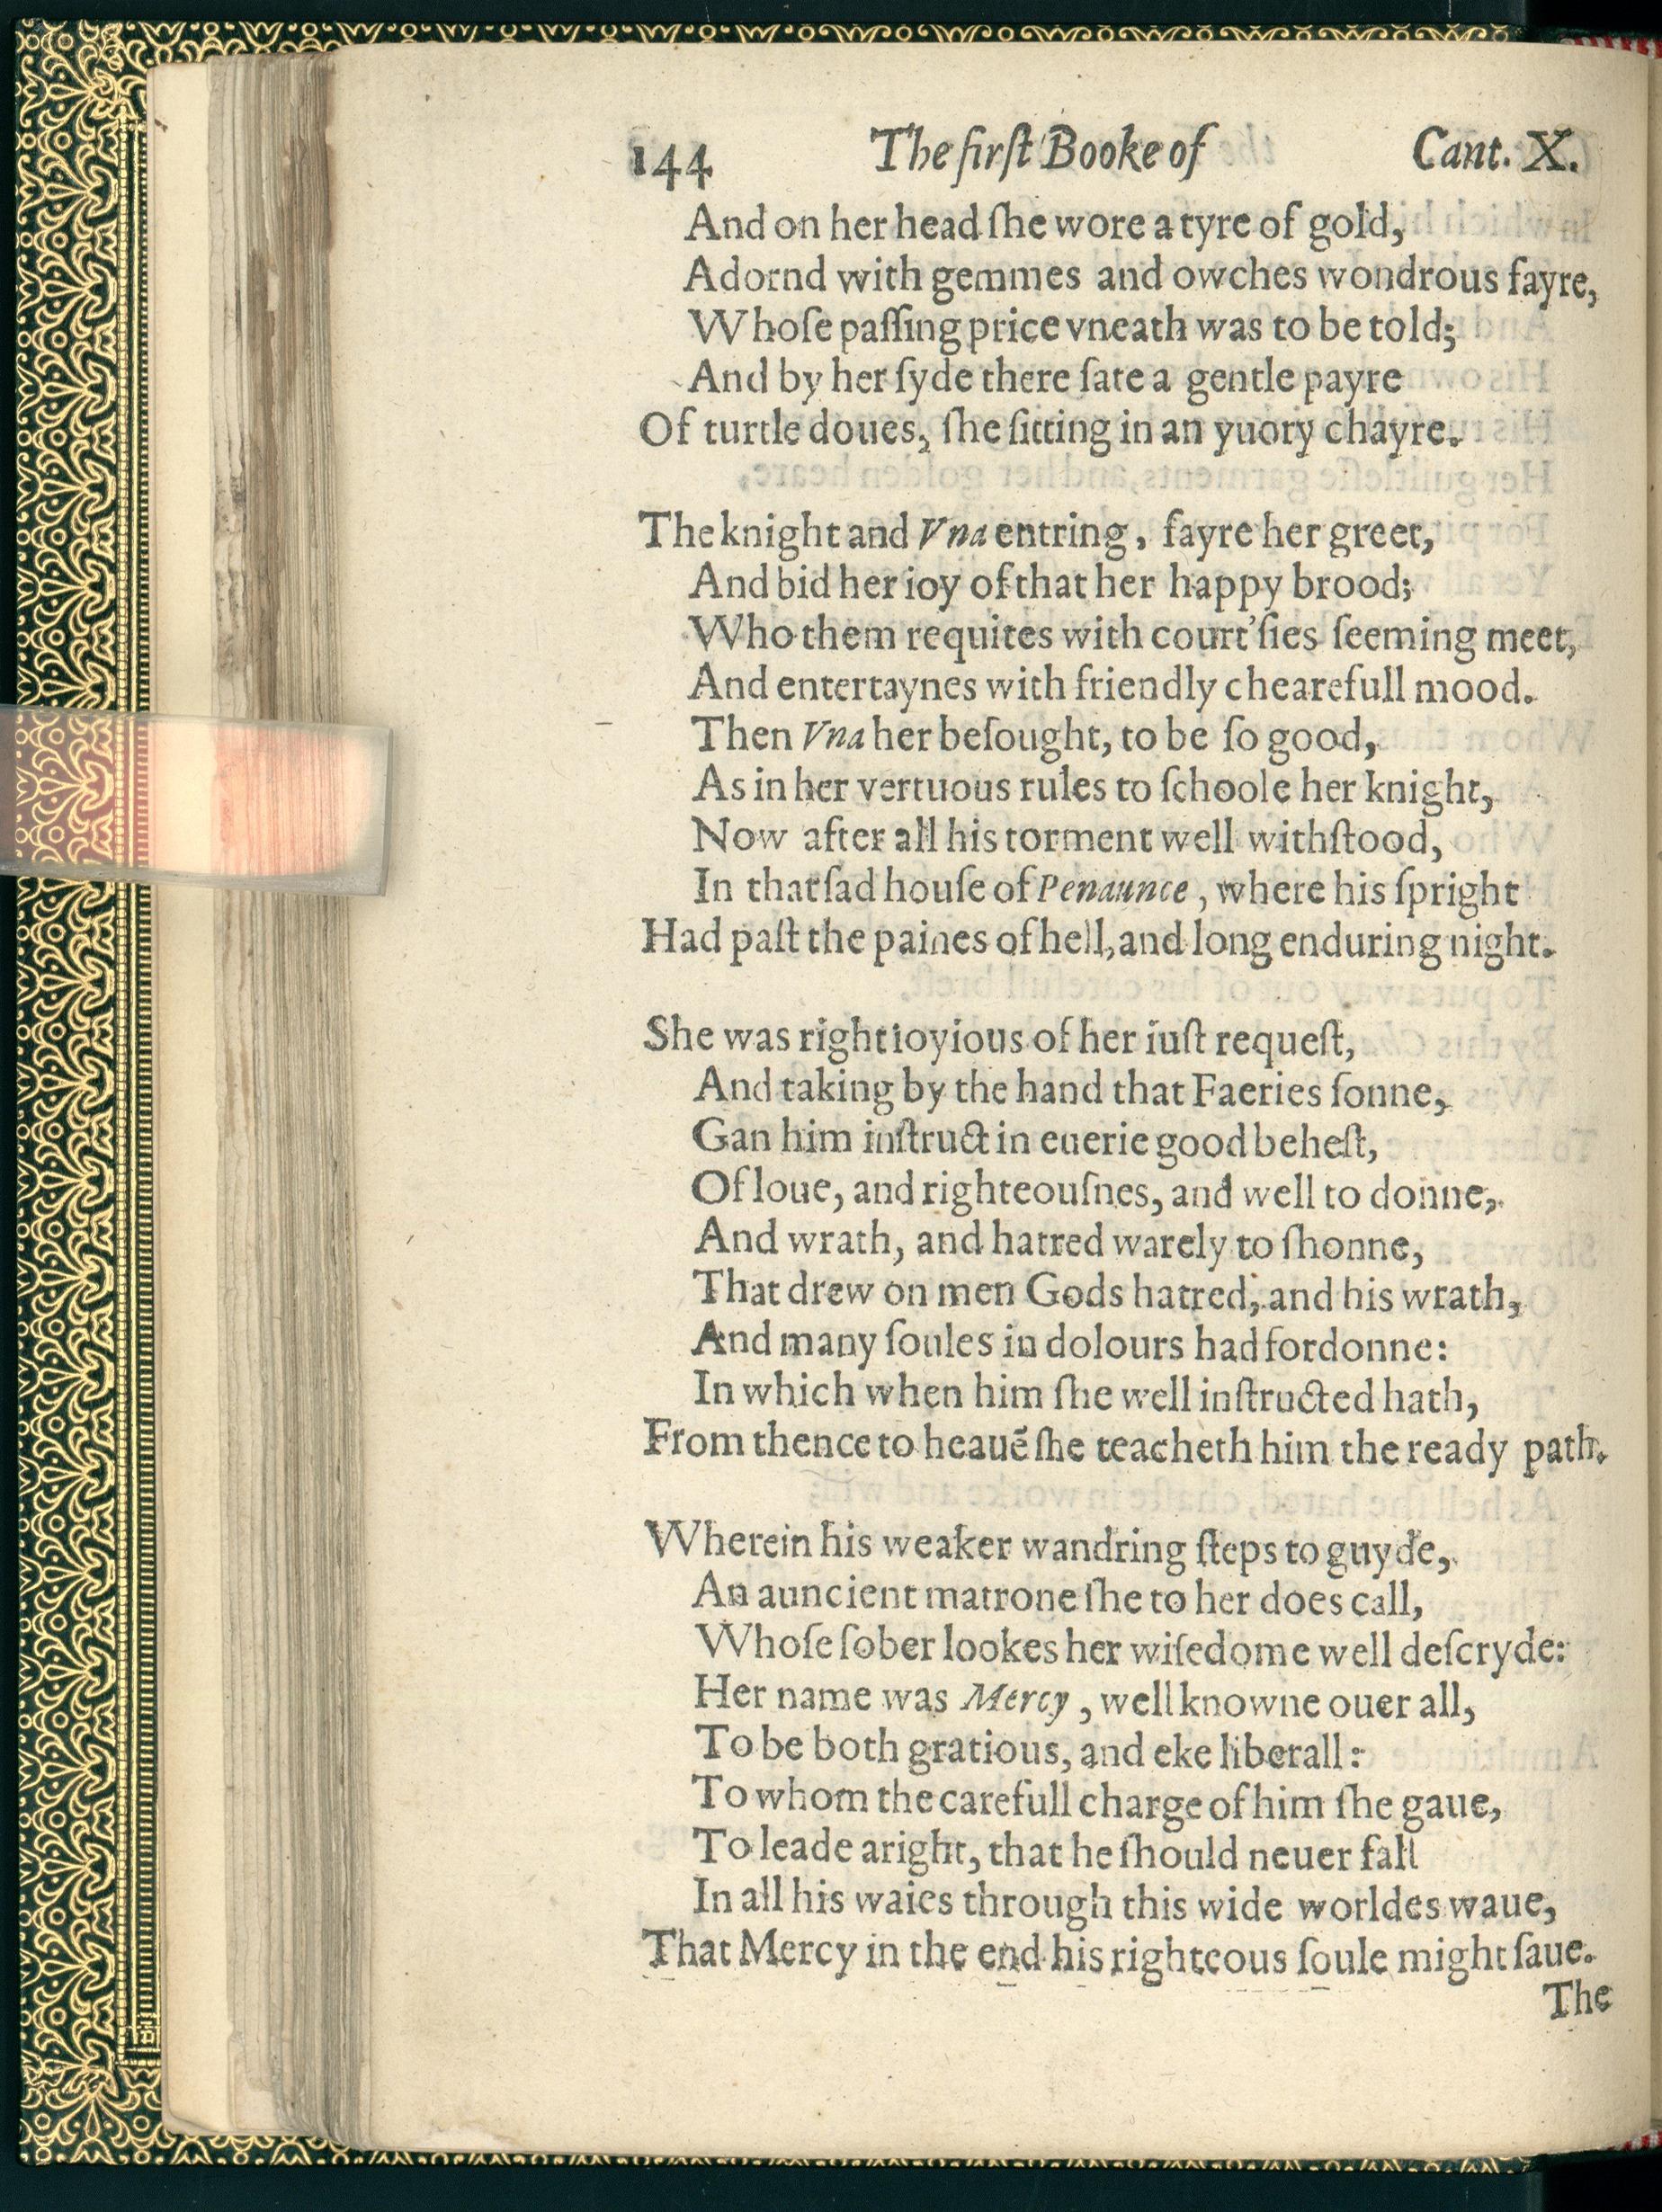 144 The firſt Booke of Cant. X.
And on her head ſhe wore a tyre of gold,
Adornd with gemmes and owches wondrous fayre,
Whoſe paſſing price vneath was to be told;
And by her ſyde there ſate a gentle payre
Of turtle doues, ſhe ſitting in an yuory chayre.
The knight and Vna entring, fayre her greet,
And bid her ioy of that her happy brood;
Who them requites with court'ſies ſeeming meet,
And entertaynes with friendly chearefull mood.
Then Vna her beſought, to be ſo good,
As in her vertuous rules to ſchoole her knight,
Now after all his torment well withſtood,
In that ſad houſe of Penaunce, where his ſpright
Had paſt the paines of hell, and long enduring night.
She was right ioyious of her iuſt requeſt,
And taking by the hand that Faeries ſonne,
Gan him inſtruct in euerie good beheſt,
Of loue, and righteouſnes, and well to donne,
And wrath, and hatred warely to ſhonne,
That drew on men Gods hatred, and his wrath,
And many ſoules in dolours had fordonne:
In which when him ſhe well inſtructed hath,
From thence to heauē ſhe teacheth him the ready path.
Wherein his weaker wandring ſteps to guyde,
An auncient matrone ſhe to her does call,
Whoſe ſober lookes her wiſedome well deſcryde:
Her name was Mercy, well knowne ouer all,
To be both gratious, and eke liberall:
To whom the carefull charge of him ſhe gaue,
To leade aright, that he ſhould neuer fall
In all his waies through this wide worldes waue,
That Mercy in the end his righteous ſoule might ſaue.
The